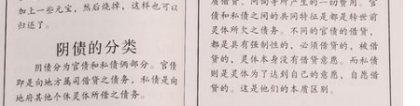 加上一些元宝，然后烧掉，这样也可以
归还了。
阴债的分类
阴债分为官债和私债俩部分。官债
即是向地方属司借贷之债务。私债是向
地府其他个体灵体所借之债务。
官债和私债之间的共同特征是都是转世前
灵体所欠之债务。不同的官债的借贷，
都是具有强制性的，必须借贷的，被借
贷的，灵体本身没有借贷意愿。而私债
则是灵体为了达到自己的意愿，自愿借
贷的。这是他们的本质区别。